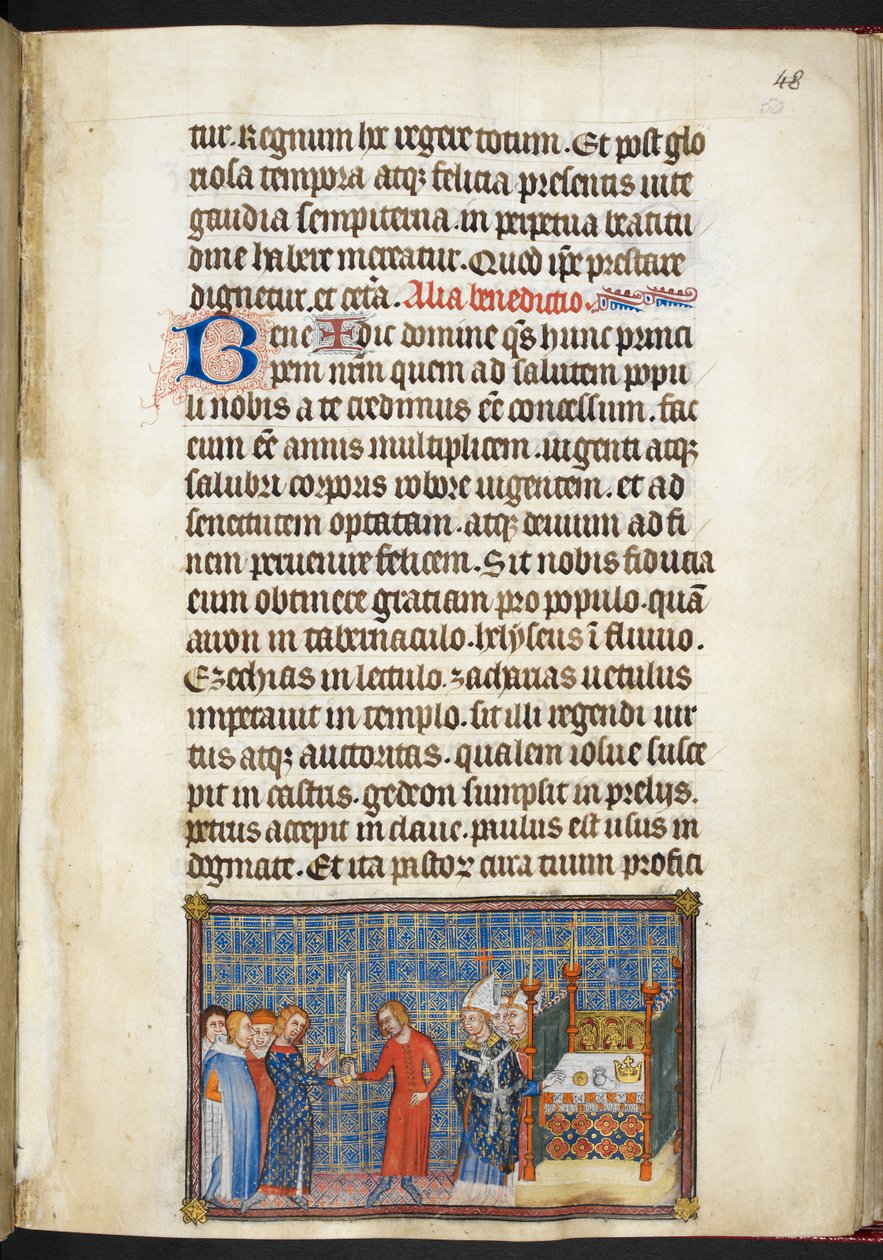 48
50
tur. Regnum hec regere totum. Et post glo
riosa tempora atqꝫ felicia presentis uite
gaudia sempiterna. in perpetua beatitu
dine habere mereatur. Quod ip̅e prestare
dignetur. et cet̉a. Alia benedictio.
Bene ✠ dic domine q̅s hunc princi
pem nr̅m quem ad salutem popu
li nobis a te credimus e̅e concessum. fac
eum e̅e annis multiplicem. uigenti atqꝫ
salubri corporis robore uigentem. et ad
senectutem optatam. atqꝫ demum ad fi
nem peruenire felicem. Sit nobis fiducia
eum obtinere gratiam pro populo. quā
aaron in tabernaculo. helyseus ī fluuio.
Ezechias in lectulo. zacharias uetulus
impetrauit in templo. sit illi regendi uir
tus atqꝫ auctoritas. qualem iosue susce
pit in castris. gedeon sumpsit in prelijs.
petrus accepit in claue. paulus est usus in
dogmate. Et ita pastoꝝ cura tuum profici